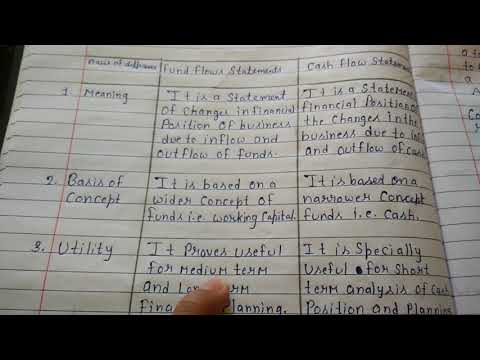 Basis of difference Fund flows Statements Cash Flow Statem
1. Meaning
It is a Statement
of changes in financial
Position of business
due to inflow and
outflow of funds.
It is a Statem
financial Position o
the changes in the
business due to in
and outflow of cas
2. Basis of
Concept
It is based on a
wider Concept of
funds i.e. working Capital.
It is based on a
narrower Concept
funds i.e. Cash.
3. Utility
It Proves useful
for medium term
and Long term
Planning.
It is Specially
Useful for Short
term analysis of Cas
Position and Planning